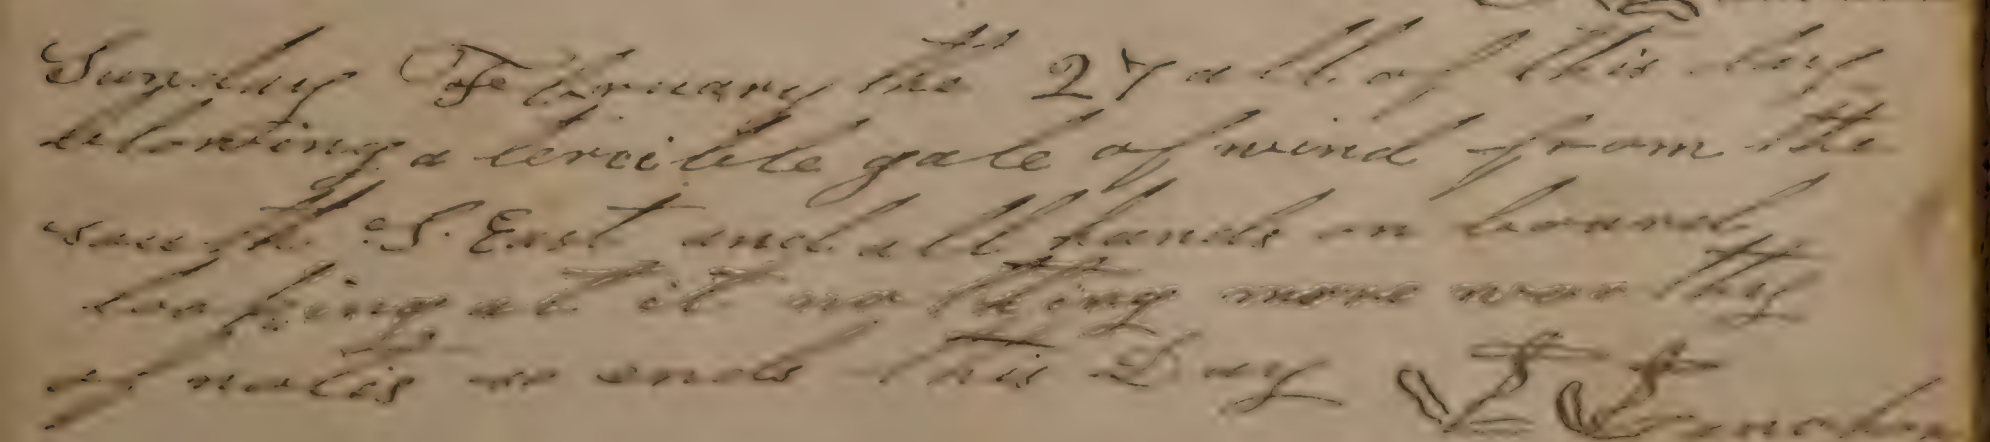 Sunday February the 27 all of this day
blowing a terible gale of wind from the
South S. East and all hands on board
looking at it no thing more wor thy
of notis so ends this Day